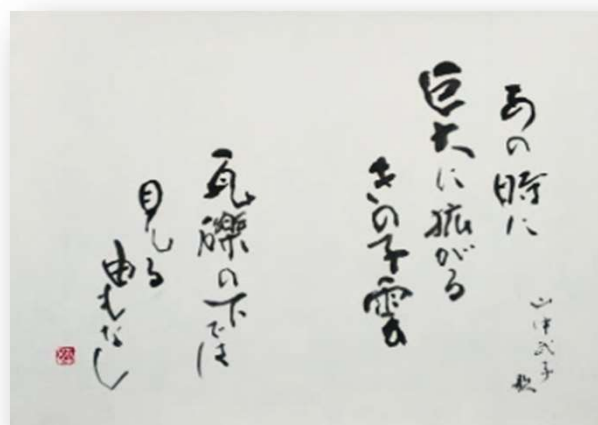 あの時に
巨大に拡がる
きの子雲
瓦礫の下では
見る
由もなし